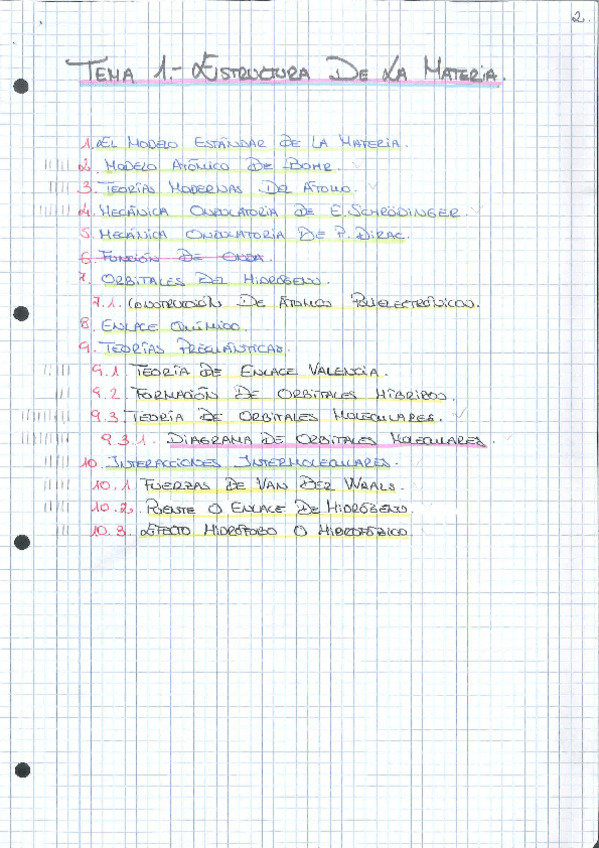 2.
TEMA 1.- ESTRUCTURA DE LA MATERIA.
1. EL MODELO ESTÁNDAR DE LA MATERIA.
2. MODELO ATÓMICO DE BOHR.
3. TEORÍAS MODERNAS DEL ÁTOMO.
4. MECÁNICA ONDULATORIA DE E. SCHRÖDINGER.
5. MECÁNICA ONDULATORIA DE P. DIRAC.
6. FUNCIÓN DE ONDA.
7. ORBITALES DEL HIDRÓGENO.
7.1. CONSTRUCCIÓN DE ÁTOMOS POLIELECTRÓNICOS.
8. ENLACE QUÍMICO.
9. TEORÍAS PRECUÁNTICAS.
9.1. TEORÍA DE ENLACE VALENCIA.
9.2. FORMACIÓN DE ORBITALES HÍBRIDOS.
9.3. TEORÍA DE ORBITALES MOLECULARES.
9.3.1. DIAGRAMA DE ORBITALES MOLECULARES.
10. INTERACCIONES INTERMOLECULARES.
10.1. FUERZAS DE VAN DER WAALS.
10.2. PUENTE O ENLACE DE HIDRÓGENO.
10.3. EFECTO HIDRÓFOBO O HIDROFÓBICO.